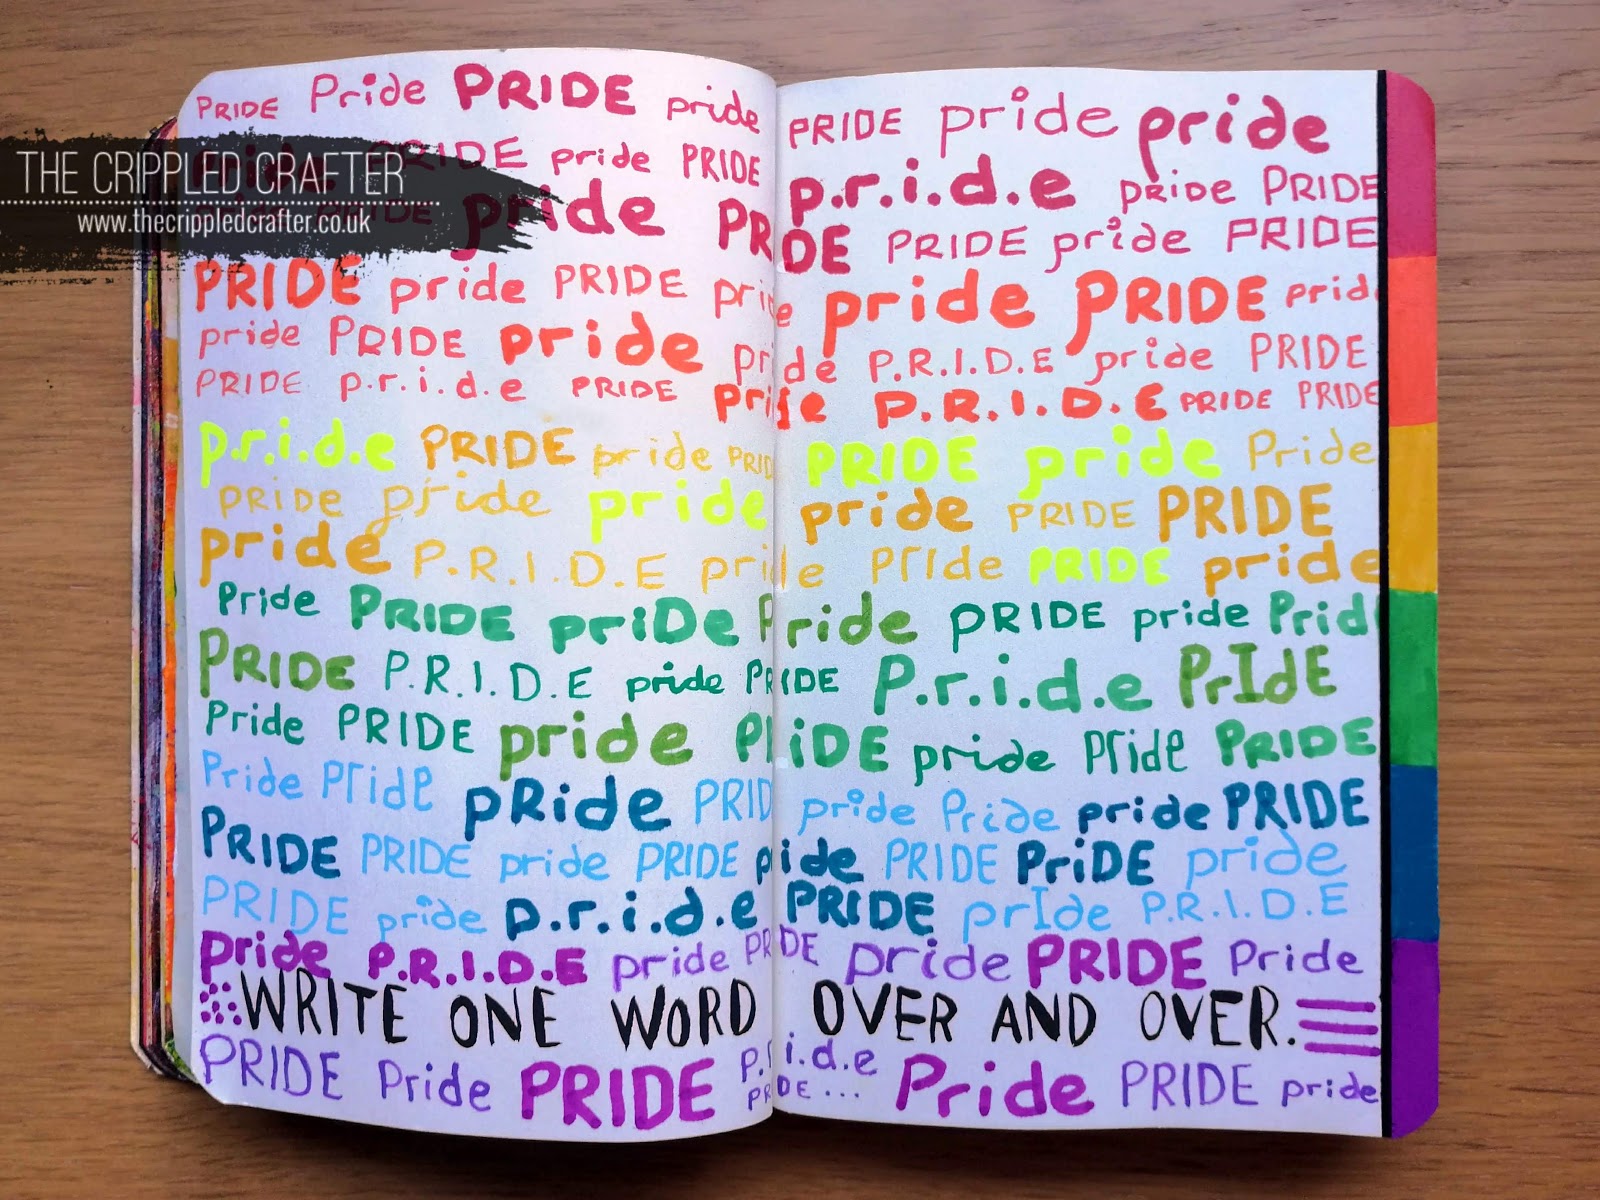 PRIDE Pride PRIDE pride PRIDE pride pride
THE CRIPPLED CRAFTER
www.thecrippledcrafter.co.uk
PRIDE pride PRIDE p.r.i.d.e pride PRIDE
PRIDE pride PRIDE PRIDE pride PRIDE
PRIDE pride PRIDE pride pride PRIDE prid
pride PRIDE pride pride P.R.I.D.E pride PRIDE
PRIDE p.r.i.d.e PRIDE pride P.R.I.D.E PRIDE PRIDE
p.r.i.d.e PRIDE pride PRID PRIDE pride Pride
PRIDE pride pride pride PRIDE PRIDE
pride P.R.I.D.E pride PrIde PRIDE pride
Pride PRIDE priDe Pride PRIDE pride Prid
PRIDE P.R.I.D.E pride PRIDE P.r.i.d.e PrIdE
Pride PRIDE pride PRiDE pride Pride PRIDE
Pride Pride pRide PRID pride Pride pride PRIDE
PRIDE PRIDE pride PRIDE pride PRIDE PriDE pride
PRIDE pride p.r.i.d.e PRIDE prIde P.R.I.D.E
pride P.R.I.D.E pride PRIDE pride PRIDE Pride
WRITE ONE WORD OVER AND OVER.
PRIDE Pride PRIDE P.r.i.d.e Pride PRIDE pride
PRIDE...